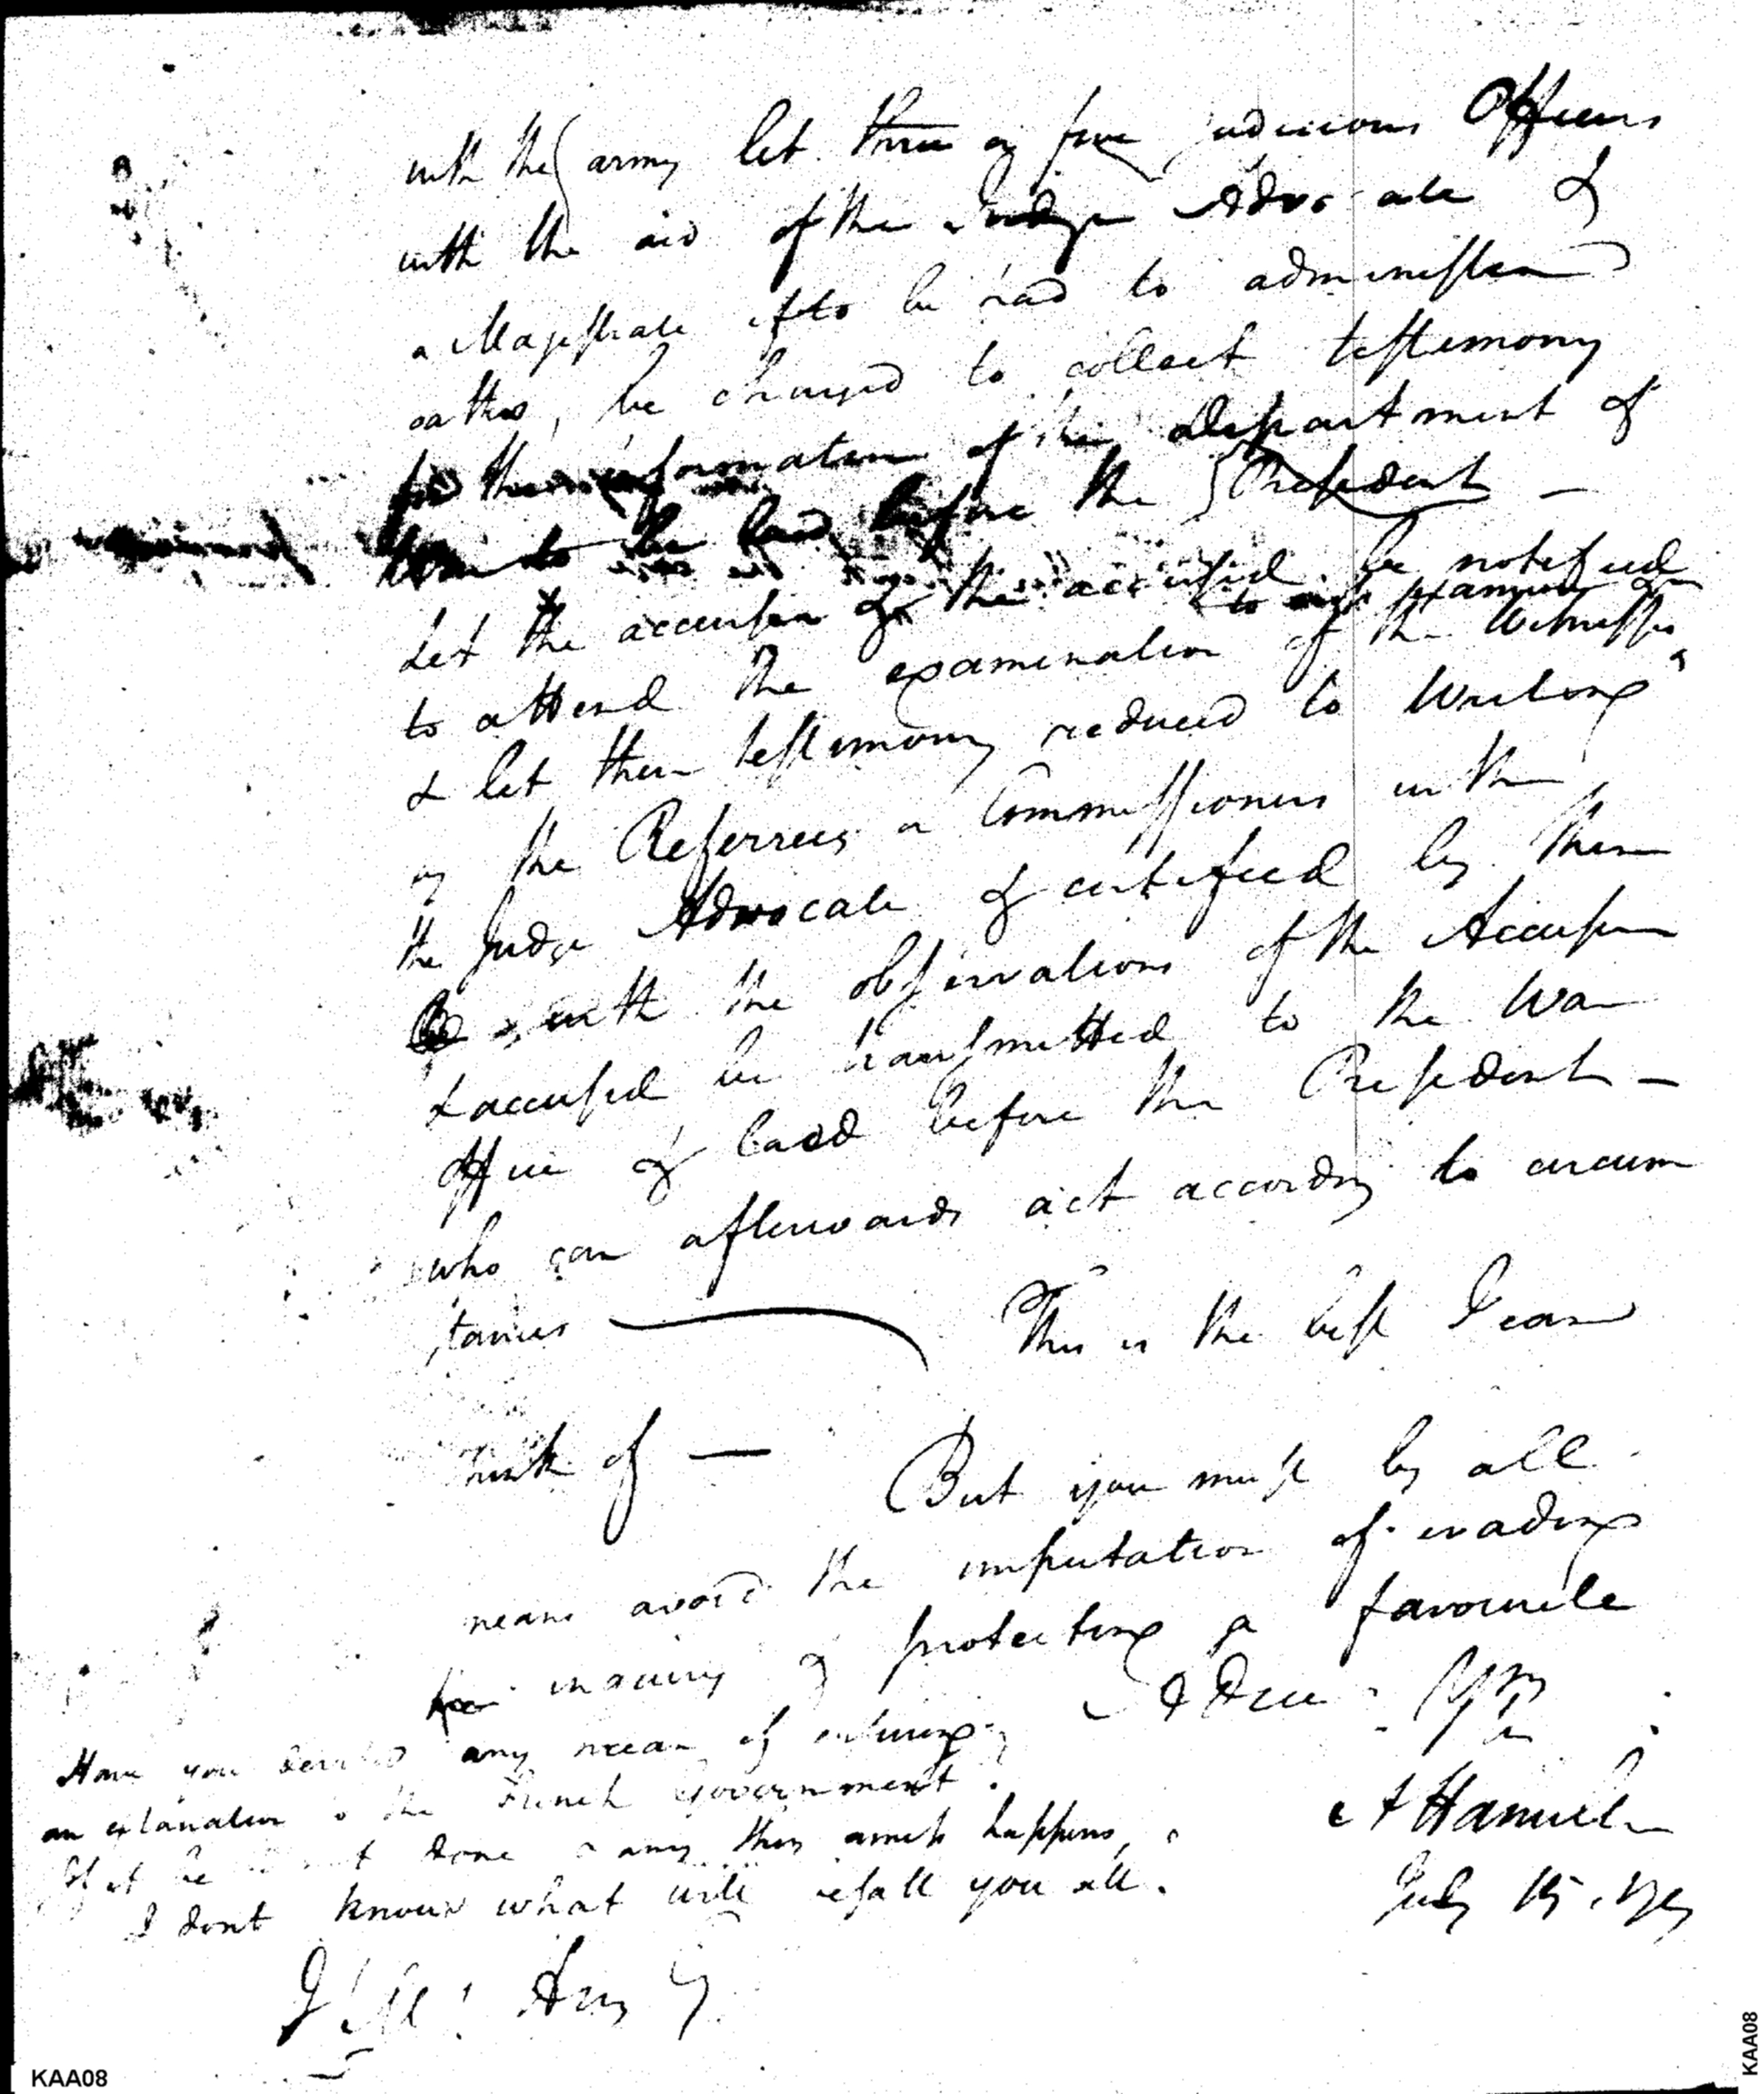 with the army let three or four judicious Officers
with the aid of the Judge Advocate &
a Magistrate if to be had to administer
oaths, be charged to collect testimony
for the information of the Department of
War to be laid before the President —
Let the accuser & the accused be notified
to examine &
to attend the examination of the Witnesses
& let their testimony reduced to Writing
by the Referrees or Commissioners with
the Judge Advocate & certified by them
with the observations of the Accuser
& accused be transmitted to the War
Office & laid before the President —
who can afterwards act according to circum
stances — This is the best I can
think of — But you must by all
means avoid the imputation of evading
inquiry & protecting a favourite
Adieu Yrs
Have you devised any mean of
an explanation to the French Government.
If it be not done & any thing amiss happens,
A Hamilton
I dont know what will befall you all.
July 15, 179
J Mc Henry
KAA08
KAA08